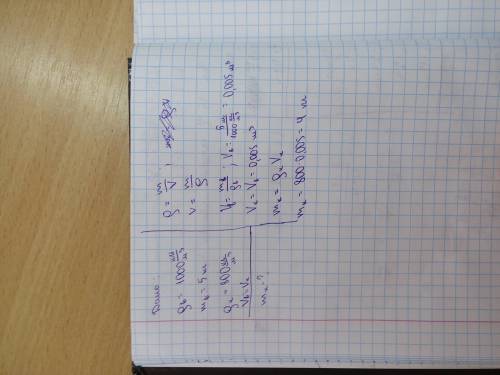 Дано:
ρв = 1000 кг/м³
mв = 5 кг
ρк = 800 кг/м³
Vв = Vк
mк = ?
ρ = m/V ;
V = m/ρ
Vв = mв/ρв ; Vв = 5 кг/1000 кг/м³ = 0,005 м³
Vк = Vв = 0,005 м³
mк = ρк Vк
mк = 800·0,005 = 4 кг